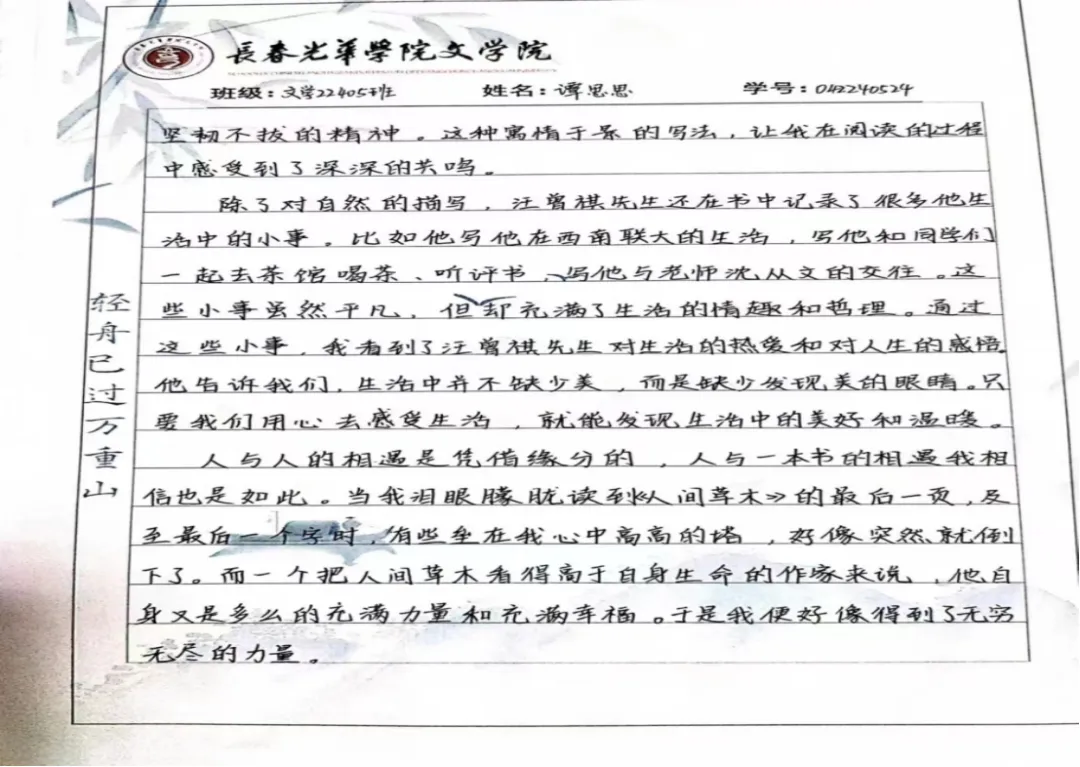 長春光華學院文学院
班级：文学22405班 姓名：谭思思 学号：042240524
坚韧不拔的精神。这种寓情于景的写法，让我在阅读的过程
中感受到了深深的共鸣。
除了对自然的描写，汪曾祺先生还在书中记录了很多他生
活中的小事。比如他写他在西南联大的生活，写他和同学们
一起去茶馆喝茶、听评书、写他与老师沈从文的交往。这
些小事虽然平凡，但却充满了生活的情趣和哲理。通过
这些小事，我看到了汪曾祺先生对生活的热爱和对人生的感悟。
他告诉我们，生活中并不缺少美，而是缺少发现美的眼睛。只
要我们用心去感受生活，就能发现生活中的美好和温暖。
人与人的相遇是凭借缘分的，人与一本书的相遇我相
信也是如此。当我泪眼朦胧读到《人间草木》的最后一页，及
至最后一个字时，有些垒在我心中高高的墙，好像突然就倒
下了。而一个把人间草木看得高于自身生命的作家来说，他自
身又是多么的充满力量和充满幸福。于是我便好像得到了无穷
无尽的力量。
轻舟已过万重山